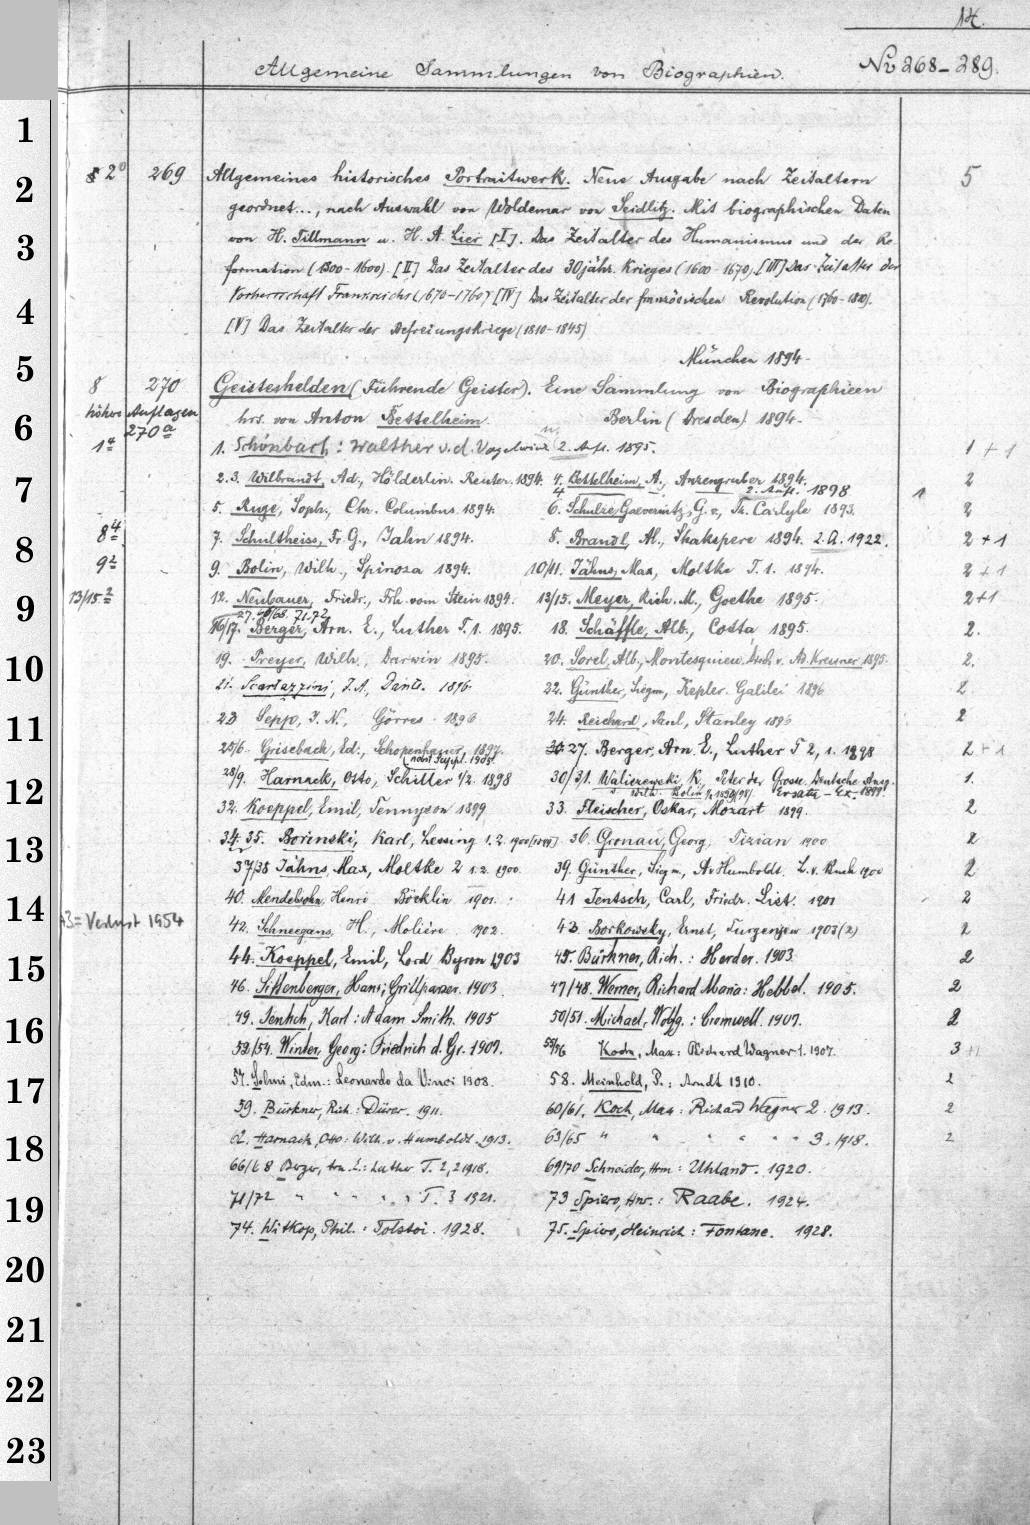 14.
Allgemeine Sammlungen von Biographien.
Nr 268-289.
1
2
3
4
5
6
7
8
9
10
11
12
13
14
15
16
17
18
19
20
21
22
23
2° 269 Allgemeines historisches Portraitwerk. Neue Ausgabe nach Zeitaltern 5
geordnet..., nach Auswahl von Woldemar von Seidlitz. Mit biographischen Daten
von H. Tillmann u. H. A. Lier [I]. Das Zeitalter des Humanismus und der Re
formation (1300-1600). [II] Das Zeitalter des 30jähr. Krieges (1600-1670). [III] Das Zeitalter der
Vorherrschaft Frankreichs (1670-1760) [IV] Das Zeitalter der französischen Revolution (1760-1810).
[V] Das Zeitalter der Befreiungskriege (1810-1845)
München 1894.
8 270 Geisteshelden (Führende Geister). Eine Sammlung von Biographieen
höhere Auflagen 270a hrs. von Anton Bettelheim. Berlin (Dresden) 1894.
1a 1. Schönbach: Walther v. d. Vogelweide 2. Aufl. 1895. 1 + 1
2.3. Wilbrandt, Ad., Hölderlin. Reuter. 1894. 4. Bettelheim, A., Anzengruber 1894. 2
4 2. Aufl. 1898 1
5. Ruge, Soph., Chr. Columbus 1894. 6. Schulze Gaevernitz, G. v., Th. Carlyle 1893. 2
8a 7. Schultheiss, Fr. G., Jahn 1894. 8. Brandl, Al., Shakspere 1894. 2. A. 1922. 2 + 1
9 9. Bolin, Wilh., Spinoza 1894. 10/11. Jähns, Max, Moltke T. 1. 1894. 2 + 1
13/15 12. Neubauer, Friedr., Frh. vom Stein 1894. 13/15. Meyer, Rich. M., Goethe 1895. 2+1
27. 66/68. 71.72
16/17. Berger, Arn. E., Luther T. 1. 1895. 18. Schäffle, Alb., Cotta 1895. 2.
19. Preyer, Wilh., Darwin 1895. 20. Sorel, Alb., Montesquieu. Deutsch v. Ad. Kressner 1895. 2.
21. Scartazzini, J. A., Dante. 1896. 22. Günther, Siegm., Kepler. Galilei 1896 2
23 Sepp, J. N., Görres 1896 24. Reichard, Paul, Stanley 1896 2
25/6. Grisebach, Ed., Schopenhauer, 1897. 27. Berger, Arn. E., Luther T 2, 1. 1898 2 + 1
28/9. Harnack, Otto, Schiller 1/2. 1898 30/31. Waliszewski, K., Peter der Grosse. Deutsche Ausg. 1.
v. Wilh. Bolin Ersatz-Ex. 1899.
32. Koeppel, Emil, Tennyson 1899 33. Fleischer, Oskar, Mozart 1899. 2
34. 35. Borinski, Karl, Lessing 1. 2. 1900 36. Gronau, Georg, Tizian 1900 2
37/38 Jähns, Max, Moltke 2 1. 2. 1900. 39. Günther, Siegm., A v Humboldt. L. v. Buch 1900 2
40. Mendelsohn, Henri Böcklin 1901. 41 Jentsch, Carl, Friedr. List. 1901 2
43=Verlust 1954 42. Schneegans, H., Molière. 1902. 43 Borkowsky, Ernst, Turgenjew 1903(2) 2
44. Koeppel, Emil, Lord Byron 1903 45. Bürkner, Rich.: Herder. 1903. 2
46. Sittenberger, Hans; Grillparzer. 1903. 47/48. Werner, Richard Maria: Hebbel. 1905. 2
49. Jentsch, Karl: Adam Smith. 1905 50/51. Michael, Wolfg.: Cromwell. 1907. 2
52/54. Winter, Georg: Friedrich d. Gr. 1907. 55/56 Koch, Max: Richard Wagner 1. 1907. 3 +1
57. Solmi, Edm.: Leonardo da Vinci 1908. 58. Meinhold, P.: Arndt 1910. 2
59. Bürkner, Rich.: Dürer. 1911. 60/61. Koch, Max: Richard Wagner 2. 1913. 2
62. Harnack, Otto: Wilh. v. Humboldt. 1913. 63/65 " " " " " " 3. 1918. 2
66/68 Berger, Arn. E.: Luther T. 2, 2 1918. 69/70 Schneider, Hrm: Uhland. 1920.
71/72 " " " " T. 3 1921. 73 Spiero, Hnr.: Raabe. 1924.
74. Witkop, Phil.: Tolstoi. 1928. 75. Spiero, Heinrich: Fontane. 1928.